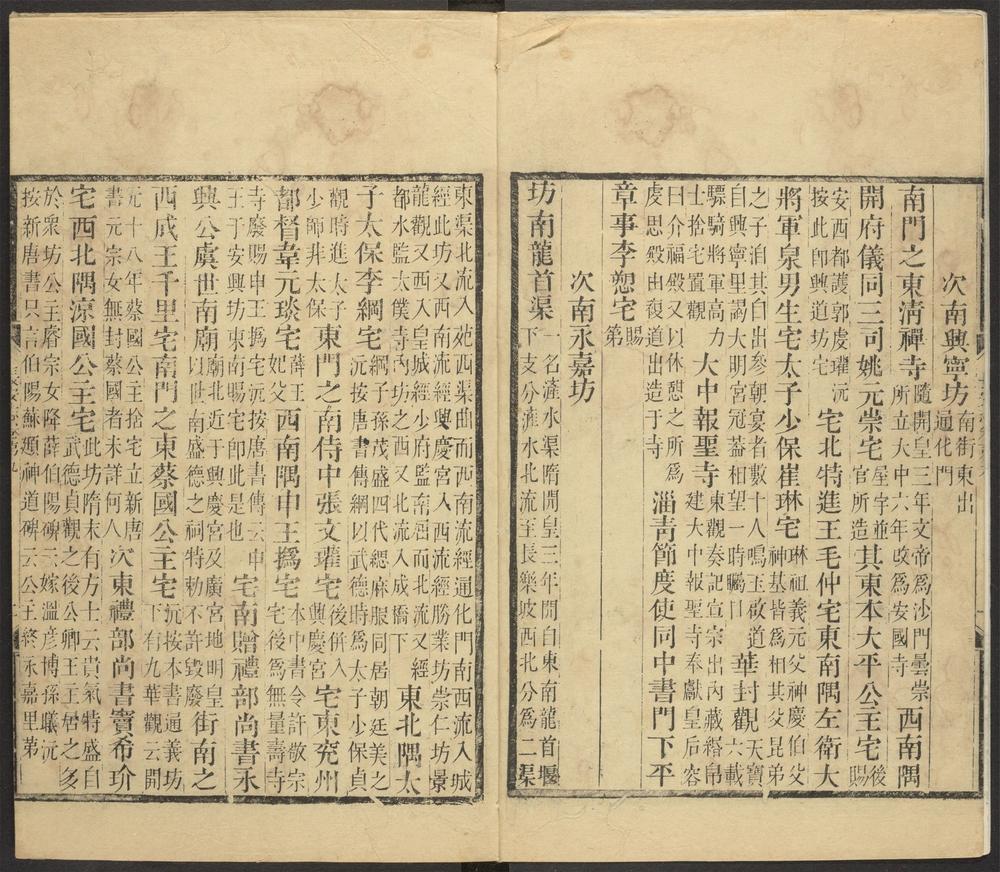 次南興寧坊南街東出通化門
南門之東清禪寺隨開皇三年文帝爲沙門曇崇所立大中六年改爲安國寺西南隅
開府儀同三司姚元崇宅屋宇並官所造其東本大平公主宅後賜
安西都護郭虔瓘沅按此即興道坊宅宅北特進王毛仲宅東南隅左衛大
將軍泉男生宅太子少保崔琳宅琳祖義元父神慶伯父神基皆爲相其父昆弟
之子洎其自出參朝宴者數十人鳴玉啟道自興寧里謁大明宮冠蓋相望一時矚目華封觀天寶六載
驃騎將軍高力士捨宅置觀大中報聖寺東觀奏記宣宗出內藏緡帛建大中報聖寺奉獻皇后容
曰介福殿又以休憩之所爲虔思殿由複道出造于寺淄青節度使同中書門下平
章事李愬宅賜第
次南永嘉坊
坊南龍首渠一名滻水渠隋開皇三年開自東南龍首堰下支分滻水北流至長樂坡西北分爲二渠
東渠北流入苑西渠曲而西南流經通化門南西流入城經此坊又西南流經興慶宮入西流經勝業坊崇仁坊景
龍觀又西入皇城經少府監南屈而北流又經都水監太僕寺內坊之西又北流入成橋下東北隅太
子太保李綱宅綱子孫茂盛四代緦麻服同居朝廷美之沅按唐書傳綱以武德時爲太子少保貞
觀時進太子少師非太保東門之南侍中張文瓘宅後併入興慶宮宅東兗州
都督韋元琰宅薛王妃父西南隅申王撝宅本中書令許敬宗宅後爲無量壽寺
寺廢賜申王撝宅沅按唐書傳云申王于安興坊東南賜宅即此是也宅南贈禮部尚書永
興公虞世南廟廟北近于興慶宮及廣宮地明皇以世南盛德之祠特勅不許毀廢街南之
西成王千里宅南門之東蔡國公主宅沅按本書通義坊下有九華觀云開
元十八年蔡國公主捨宅立新唐書元宗女無封蔡國者未詳何人次東禮部尚書竇希玠
宅西北隅涼國公主宅此坊隋末有方士云貴氣特盛自武德貞觀之後公卿王主居之多
於衆坊公主睿宗女降薛伯陽碑云嫁溫彥博孫曦沅按新唐書只言伯陽蘇頲神道碑云公主終永嘉里第